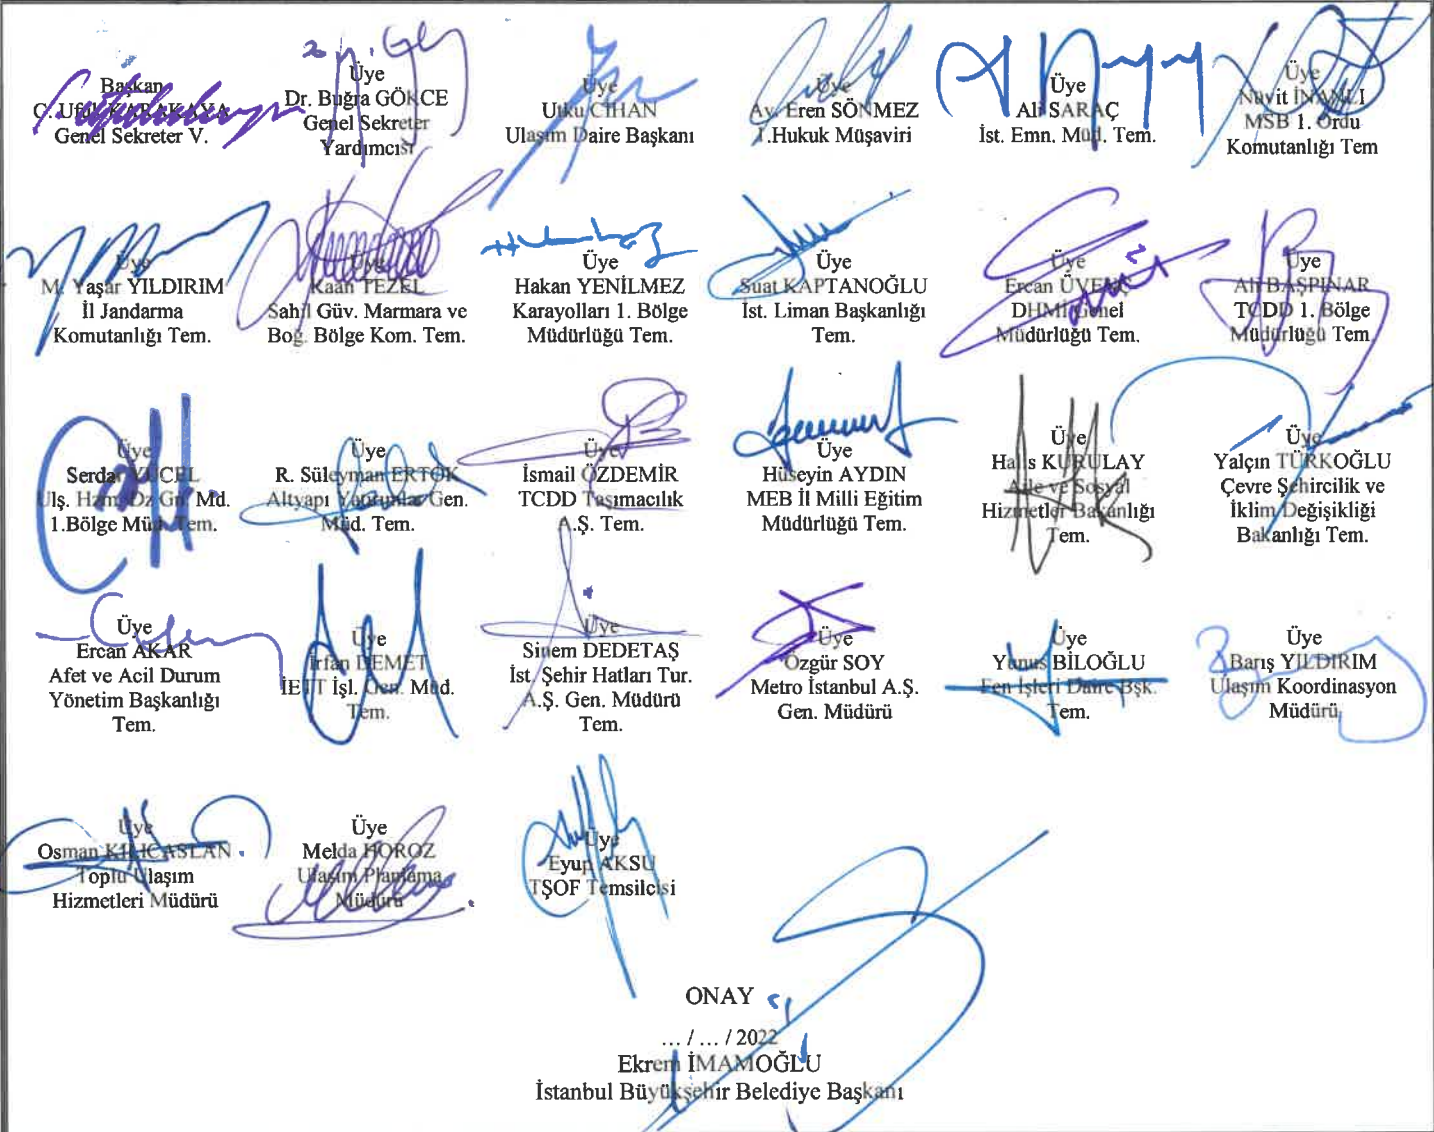 Başkan
C. Ufuk KARAKAYA
Genel Sekreter V.
Üye
Dr. Buğra GÖKCE
Genel Sekreter
Yardımcısı
Üye
Utku CİHAN
Ulaşım Daire Başkanı
Üye
Av. Eren SÖNMEZ
1.Hukuk Müşaviri
Üye
Ali SARAÇ
İst. Emn. Müd. Tem.
Üye
Nüvit İNANLI
MSB 1. Ordu
Komutanlığı Tem
Üye
M. Yaşar YILDIRIM
İl Jandarma
Komutanlığı Tem.
Üye
Kaan TEZEL
Sahil Güv. Marmara ve
Boğ. Bölge Kom. Tem.
Üye
Hakan YENİLMEZ
Karayolları 1. Bölge
Müdürlüğü Tem.
Üye
Suat KAPTANOĞLU
İst. Liman Başkanlığı
Tem.
Üye
Ercan ÜVENÇ
DHMİ Genel
Müdürlüğü Tem.
Üye
Ali BAŞPINAR
TCDD 1. Bölge
Müdürlüğü Tem
Üye
Serdar YÜCEL
Ulş. Hzm. Dz Gn. Md.
1.Bölge Müd. Tem.
Üye
R. Süleyman ERTOK
Altyapı Yatırımlar Gen.
Müd. Tem.
Üye
İsmail ÖZDEMİR
TCDD Taşımacılık
A.Ş. Tem.
Üye
Hüseyin AYDIN
MEB İl Milli Eğitim
Müdürlüğü Tem.
Üye
Halis KURULAY
Aile ve Sosyal
Hizmetler Bakanlığı
Tem.
Üye
Yalçın TÜRKOĞLU
Çevre Şehircilik ve
İklim Değişikliği
Bakanlığı Tem.
Üye
Ercan AKAR
Afet ve Acil Durum
Yönetim Başkanlığı
Tem.
Üye
İrfan DEMET
İETT İşl. Gen. Müd.
Tem.
Üye
Sinem DEDETAŞ
İst. Şehir Hatları Tur.
A.Ş. Gen. Müdürü
Tem.
Üye
Özgür SOY
Metro İstanbul A.Ş.
Gen. Müdürü
Üye
Yunus BİLOĞLU
Fen İşleri Daire Bşk.
Tem.
Üye
Barış YILDIRIM
Ulaşım Koordinasyon
Müdürü
Üye
Osman KILIÇASLAN
Toplu Ulaşım
Hizmetleri Müdürü
Üye
Melda HOROZ
Ulaşım Planlama
Müdürü
Üye
Eyup AKSU
TŞOF Temsilcisi
ONAY
... / ... / 2022
Ekrem İMAMOĞLU
İstanbul Büyükşehir Belediye Başkanı